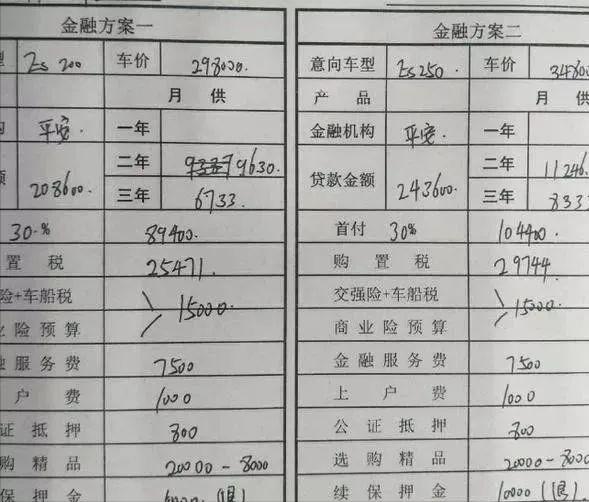 金融方案一
型 Es 200 车价 298000.
月供
构 平安. 一年
额 208600. 二年 9630.
三年 6733.
30% 89400.
置税 25471.
险+车船税 15000.
业险预算
融服务费 7500
户费 1000
证抵押 800
购精品 20000-8000
保押金 (退)
金融方案二
意向车型 Es250. 车价 34800
产品 月供
金融机构 平安. 一年
贷款金额 243600. 二年 11246.
三年 8333
首付 30% 104400.
购置税 29744.
交强险+车船税 15000.
商业险预算
金融服务费 7500
上户费 1000
公证抵押 800
选购精品 20000-8000
续保押金 10000 (退)